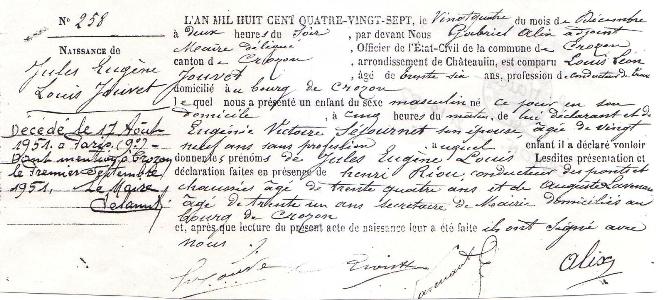 N° 258
NAISSANCE DE
Jules Eugène
Louis Jouvet
Décédé le 17 Août
1951 à Paris (9e)
Dont mention à Crozon
le premier Septembre
1951. Le Maire
L'AN MIL HUIT CENT QUATRE-VINGT-SEPT, le Vingt quatre du mois de Décembre
à deux heures du Soir, par devant Nous Gabriel Alix adjoint
Maire délégué, Officier de l'État-Civil de la commune de Crozon
canton de Crozon, arrondissement de Châteaulin, est comparu Louis Léon
Jouvet, âgé de trente six ans, profession de conducteur de
domicilié au bourg de Crozon
lequel nous a présenté un enfant du sexe masculin né ce jour en son
domicile, à cinq heures du matin, de lui déclarant et de
Eugénie Victoire Séjournet son épouse, âgée de vingt
neuf ans sans profession auquel enfant il a déclaré vouloir
donner les prénoms de Jules Eugène Louis Lesdites présentation et
déclaration faites en présence de henri Riou, conducteur des ponts et
chaussées âgé de trente quatre ans et de Auguste
âgé de trente un ans secrétaire de Mairie domiciliés au
bourg de Crozon
et, après que lecture du présent acte de naissance leur a été faite ils ont signé avec
nous.
Alix